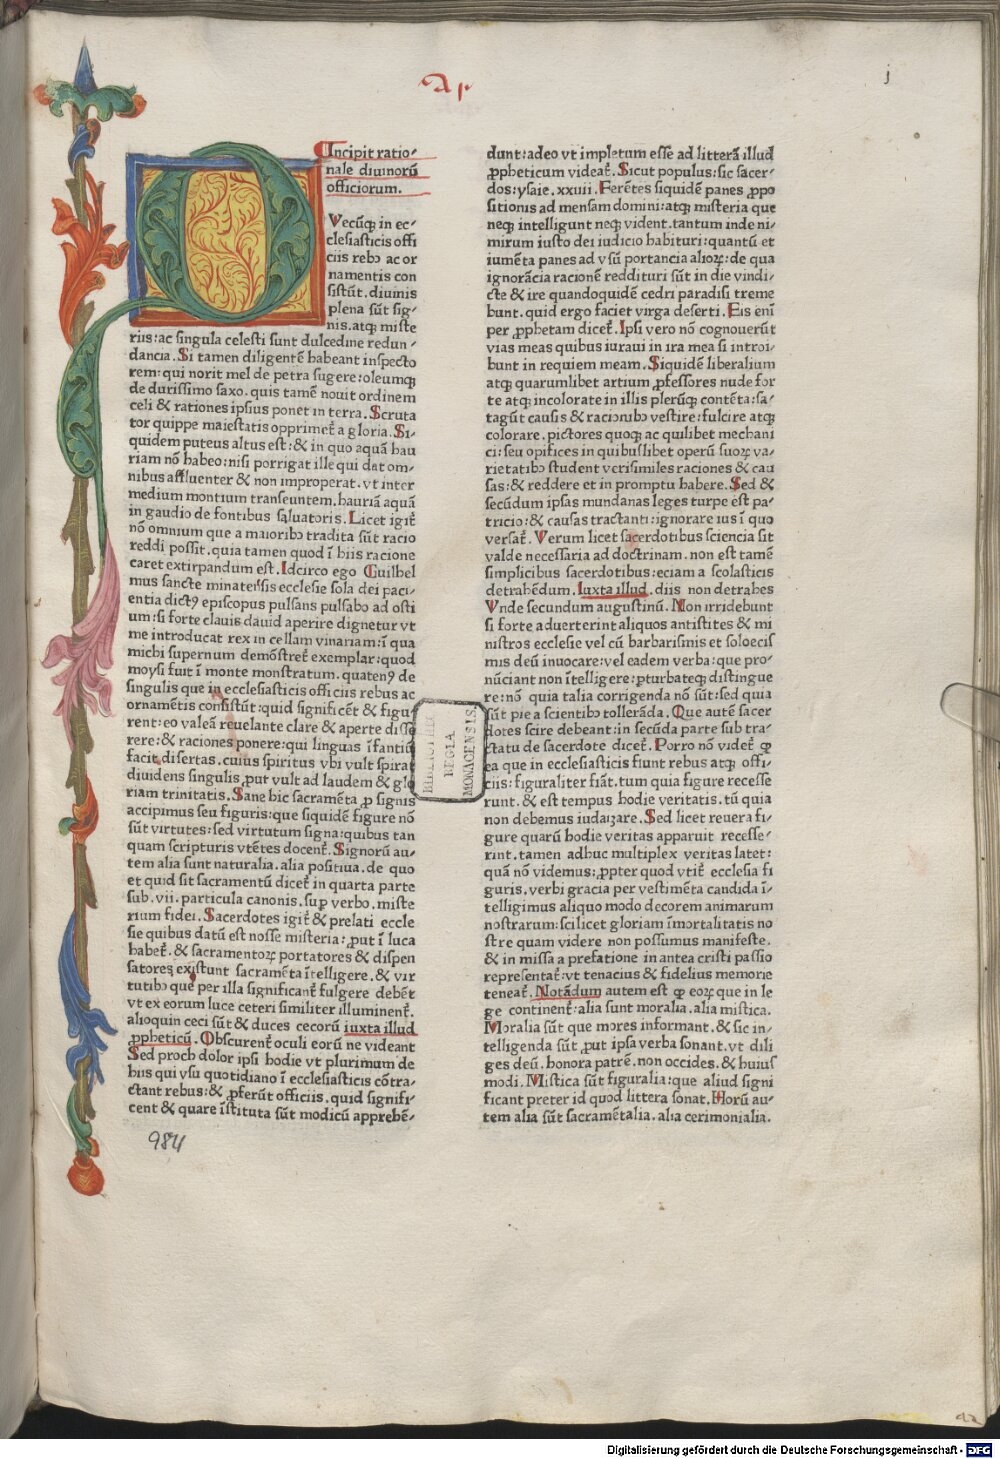 A p
j
Incipit ratio⸗
nale diuinorū
officiorum.
Vecūq; in ec⸗
clesiasticis offi
ciis rebꝰ ac or
namentis con
sistūt. diuinis
plena sūt sig⸗
nis. atq; miste
riis: ac singula celesti sunt dulcedine redun⸗
dancia. Si tamen diligentē habeant inspecto
rem: qui norit mel de petra sugere: oleumq;
de durissimo saxo. quis tamē nouit ordinem
celi & rationes ipsius ponet in terra. Scruta
tor quippe maiestatis opprimet̄ a gloria. Si⸗
quidem puteus altus est: & in quo aquā hau
riam nō habeo: nisi porrigat ille qui dat om⸗
nibus affluenter & non improperat. vt inter
medium montium transeuntem. hauriā aquā
in gaudio de fontibus saluatoris. Licet igit̄
nō omnium que a maioribꝰ tradita sūt racio
reddi possit. quia tamen quod ī hiis racione
caret extirpandum est. Idcirco ego Guilhel
mus sancte minatensis ecclesie sola dei paci⸗
entia dictꝰ episcopus pulsans pulsabo ad osti
um: si forte clauis dauid aperire dignetur vt
me introducat rex in cellam vinariam: ī qua
michi supernum demōstret̄ exemplar: quod
moysi fuit ī monte monstratum. quatenꝰ de
singulis que in ecclesiasticis officiis rebus ac
ornamētis consistūt: quid significēt & figu⸗
rent: eo valeā reuelante clare & aperte disse
rere: & raciones ponere: qui linguas īfantiū
facit disertas. cuius spiritus vbi vult spirat
diuidens singulis ꝓut vult ad laudem & glo
riam trinitatis. Sane hic sacramēta ꝓ signis
accipimus seu figuris: que siquidē figure nō
sūt virtutes: sed virtutum signa: quibus tan
quam scripturis vtētes docent̄. Signorū au⸗
tem alia sunt naturalia. alia positiua. de quo
et quid sit sacramentū dicet̄ in quarta parte
sub. vii. particula canonis. suꝑ verbo. miste
rium fidei. Sacerdotes igit̄ & prelati eccle
sie quibus datū est nosse misteria: ꝓut ī luca
habet̄. & sacramentoꝝ portatores & dispen
satores existunt sacramēta ītelligere. & vir
tutibꝰ que per illa significant̄ fulgere debēt
vt ex eorum luce ceteri similiter illuminent̄.
alioquin ceci sūt & duces cecorū iuxta illud
ꝓpheticū. Obscurent̄ oculi eorū ne videant
Sed proch dolor ipsi hodie vt plurimum de
hiis qui vsu quotidiano ī ecclesiasticis cōtra⸗
ctant rebus: & ꝓferūt officiis. quid signifi⸗
cent & quare īstituta sūt modicū apprehē⸗
984
dunt: adeo vt impletum esse ad litterā illud
ꝓpheticum videat̄. Sicut populus: sic sacer⸗
dos: ysaie. xxiiii. Ferētes siquidē panes ꝓpo
sitionis ad mensam domini: atq; misteria que
neq; intelligunt neq; vident. tantum inde ni⸗
mirum iusto dei iudicio habituri: quantū et
iumēta panes ad vsū portancia alioꝝ: de qua
ignorācia racionē reddituri sūt in die vindi⸗
cte & ire quandoquidē cedri paradisi treme
bunt. quid ergo faciet virga deserti. Eis enī
per ꝓphetam dicet̄. Ipsi vero nō cognouerūt
vias meas quibus iuraui in ira mea si introi⸗
bunt in requiem meam. Siquidē liberalium
atq; quarumlibet artium ꝓfessores nude for
te atq; incolorate in illis plerūq; contēta: sa⸗
tagūt causis & racionibꝰ vestire: fulcire atq;
colorare. pictores quoq; ac quilibet mechani
ci: seu opifices in quibuslibet operū suoꝝ va⸗
rietatibꝰ student verisimiles raciones & cau
sas: & reddere et in promptu habere. Sed &
secūdum ipsas mundanas leges turpe est pa⸗
tricio: & causas tractanti: ignorare ius ī quo
versat̄. Verum licet sacerdotibus sciencia sit
valde necessaria ad doctrinam. non est tamē
simplicibus sacerdotibus: eciam a scolasticis
detrahēdum. Iuxta illud. diis non detrahes
Vnde secundum augustinū. Non irridebunt
si forte aduerterint aliquos antistites & mi
nistros ecclesie vel cū barbarismis et soloecis
mis deū inuocare: vel eadem verba: que pro⸗
nūciant non ītelligere: ꝑturbateq; distingue
re: nō quia talia corrigenda nō sūt: sed quia
sūt pie a scientibꝰ tollerāda. Que autē sacer
dotes scire debeant: in secūda parte sub tra⸗
ctatu de sacerdote dicet̄. Porro nō videt̄ ꝙ
ea que in ecclesiasticis fiunt rebus atq; offi⸗
ciis: figuraliter fiāt. tum quia figure recesse
runt. & est tempus hodie veritatis. tū quia
non debemus iudaizare. Sed licet reuera fi⸗
gure quarū hodie veritas apparuit recesse⸗
rint. tamen adhuc multiplex veritas latet:
quā nō videmus: ꝓpter quod vtit̄ ecclesia fi
guris. verbi gracia per vestimēta candida ī⸗
telligimus aliquo modo decorem animarum
nostrarum: scilicet gloriam īmortalitatis no
stre quam videre non possumus manifeste.
& in missa a prefatione in antea cristi passio
representat̄: vt tenacius & fidelius memorie
teneat̄. Notādum autem est ꝙ eoꝝ que in le
ge continent̄: alia sunt moralia. alia mistica.
Moralia sūt que mores informant. & sic in⸗
telligenda sūt ꝓut ipsa verba sonant. vt dili
ges deū. honora patrē. non occides. & huius
modi. Mistica sūt figuralia: que aliud signi
ficant preter id quod littera sonat. Horū au⸗
tem alia sūt sacramētalia. alia cerimonialia.
BIBLIOTHECA
REGIA
MONACENSIS.
Digitalisierung gefördert durch die Deutsche Forschungsgemeinschaft - DFG